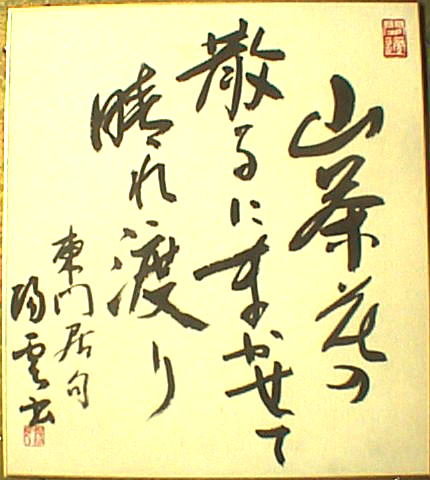 山茶花の
散るにまかせて
晴れ渡り
東門居句
陽雲書